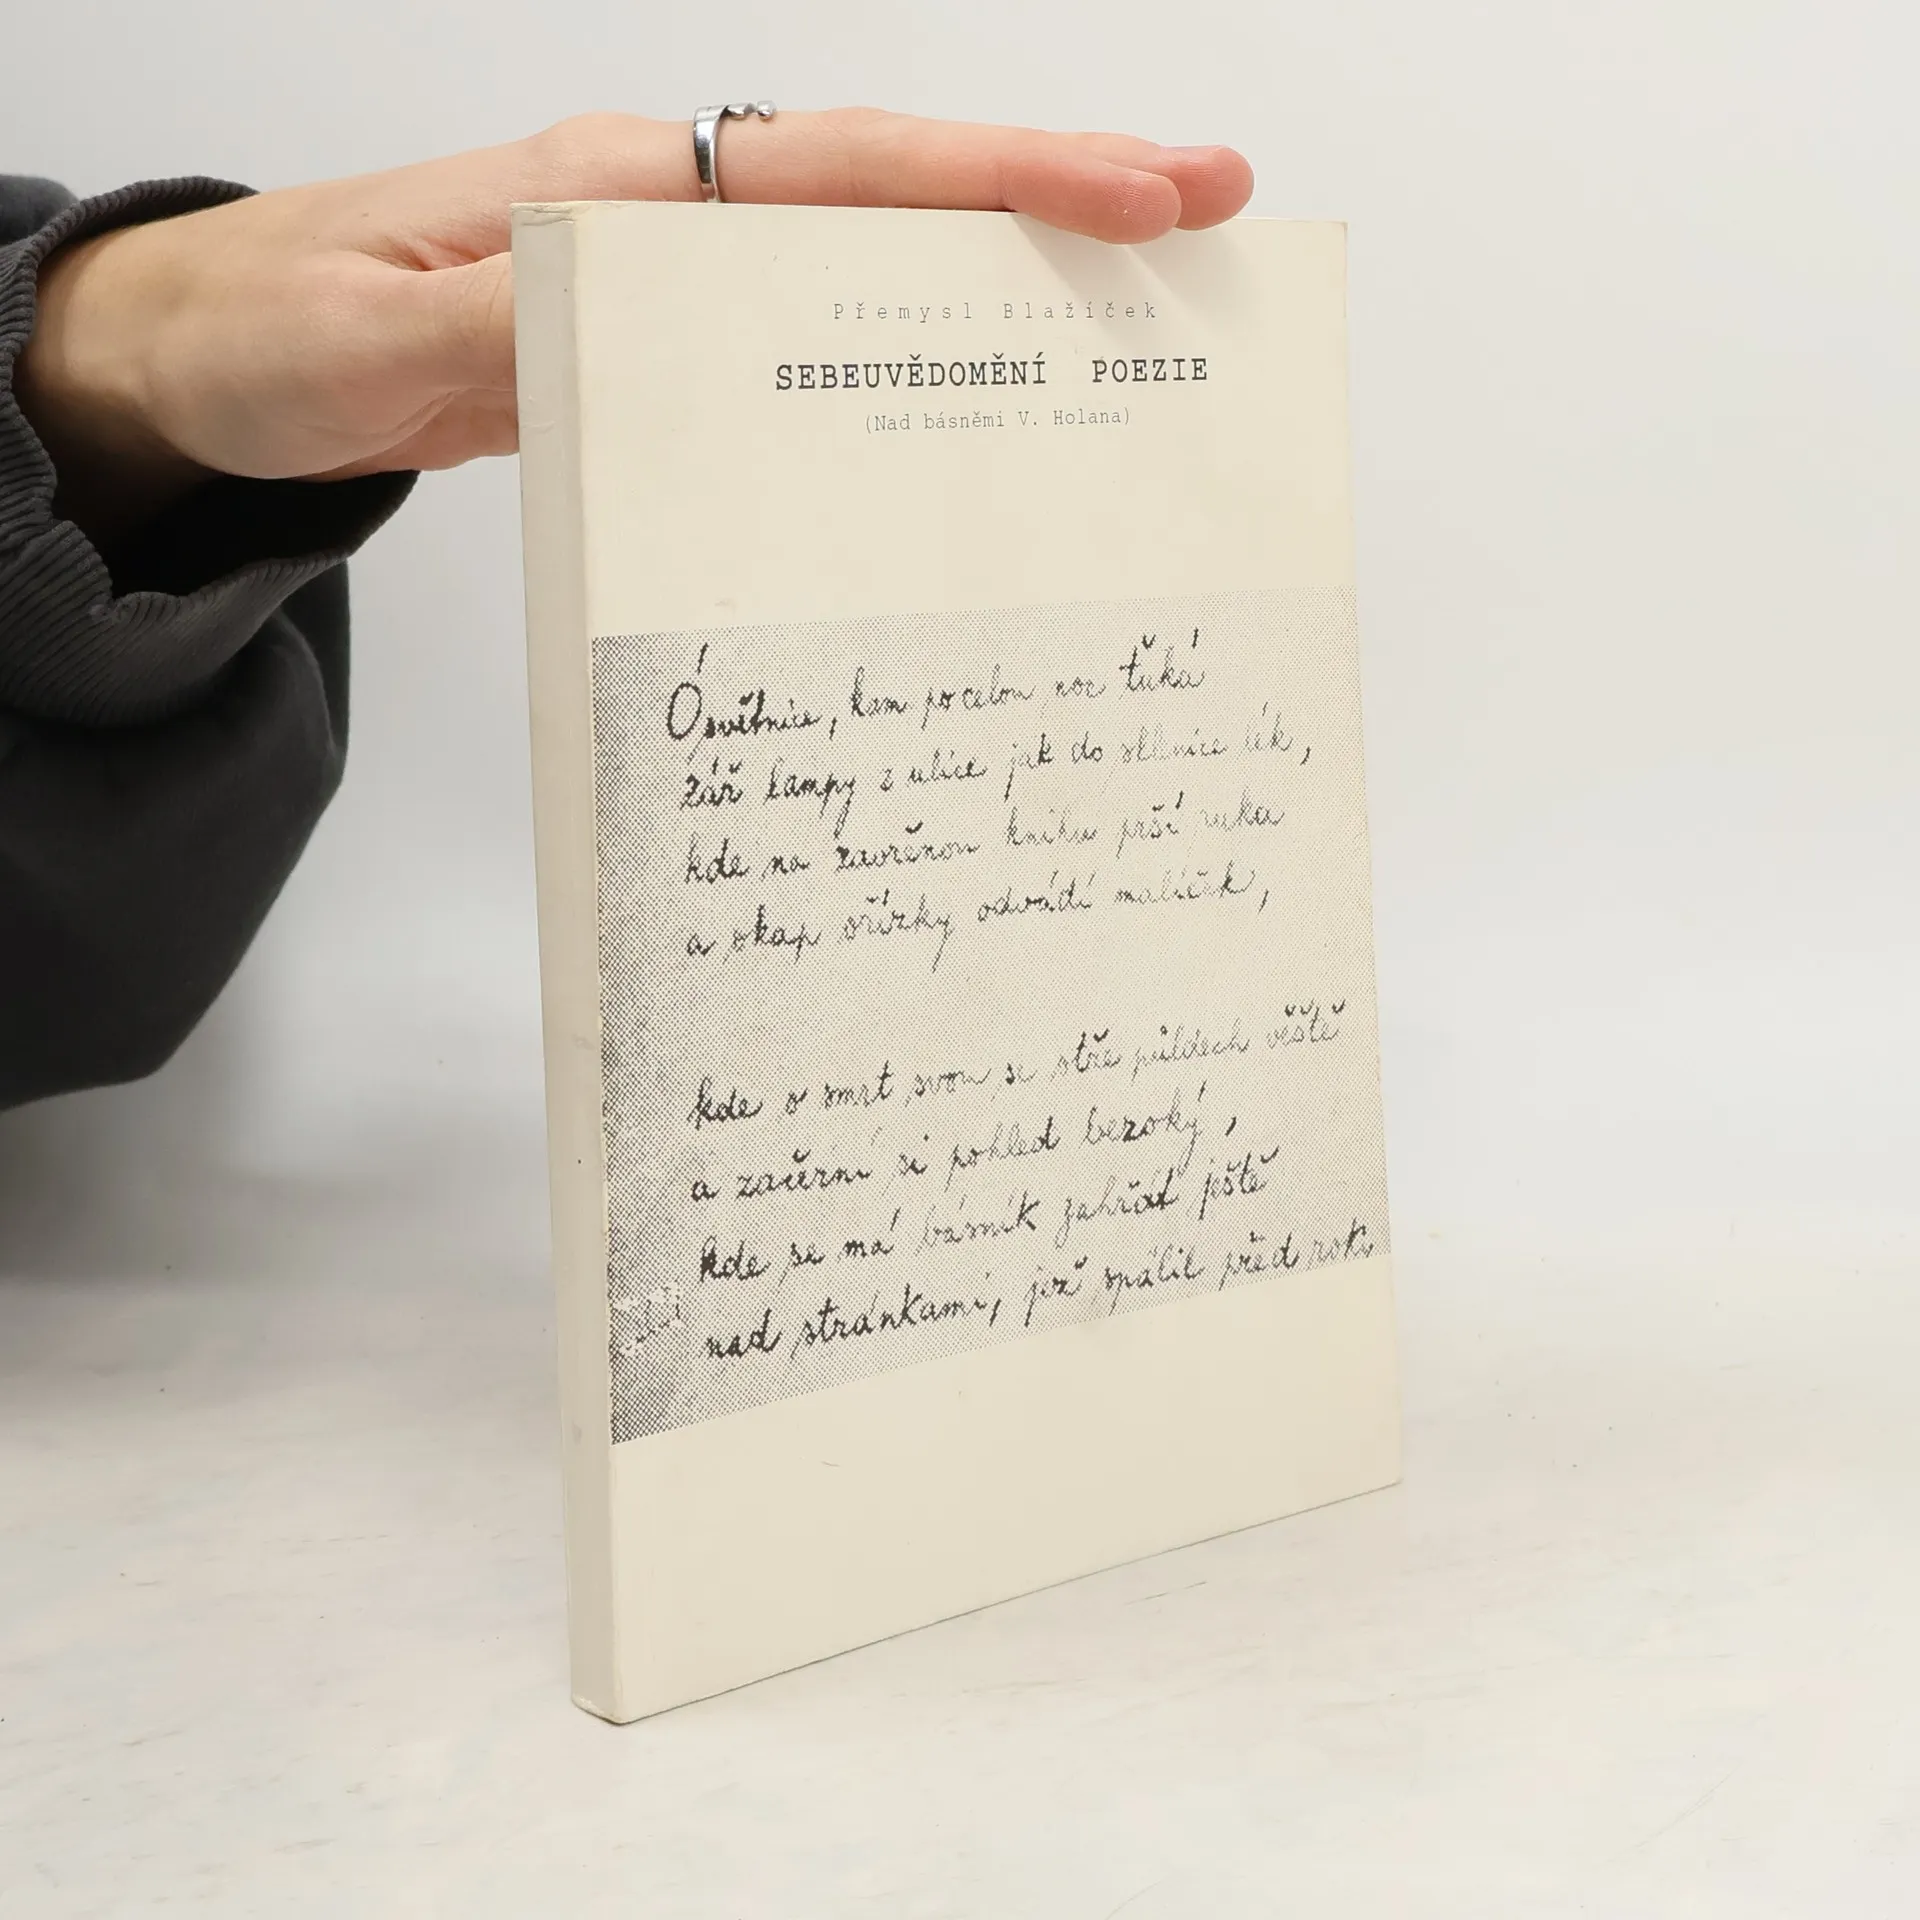 Přemysl Blažíček
SEBEUVĚDOMĚNÍ POEZIE
(Nad básněmi V. Holana)
Ó světnice, kam po celou noc ťuká
zář lampy z ulice jak do sklenice lék,
kde na zavřenou knihu prší ruka
a okap ořízky odvádí malíček,
kde o smrt svou se otře půldech věště
a začerní si pohled bezoký,
kde se má básník zahřát ještě
nad stránkami, jež spálil před roky